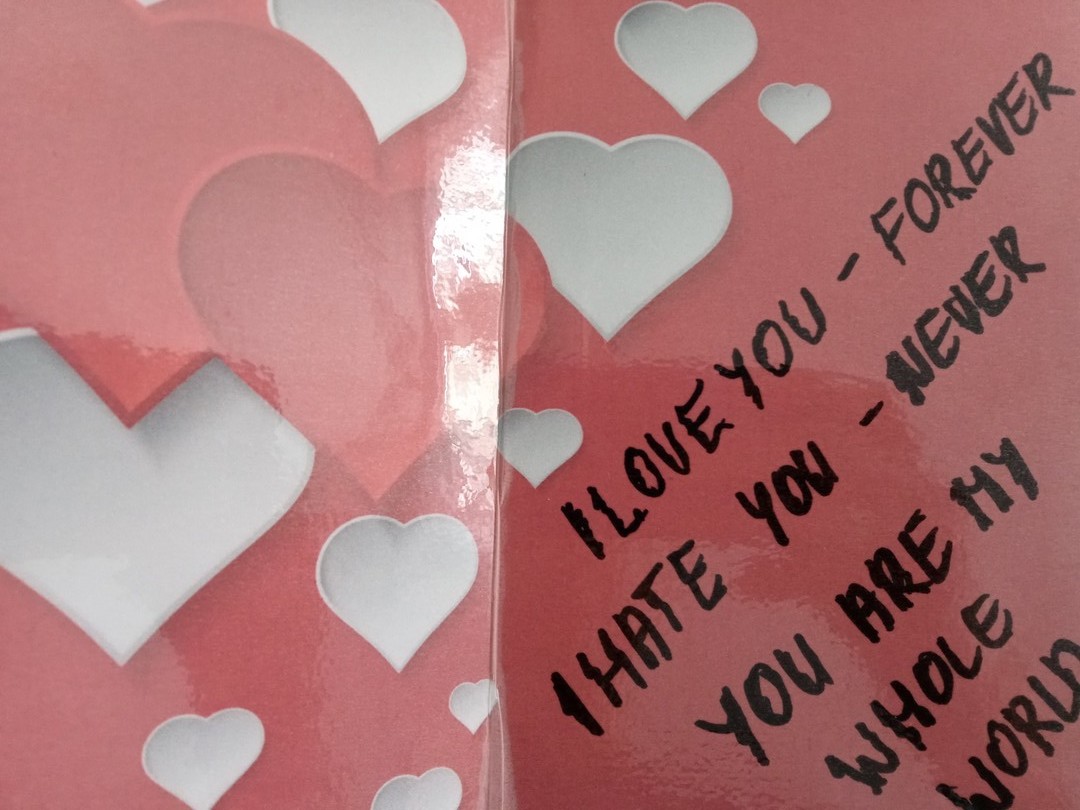 I LOVE YOU - FOREVER
I HATE YOU - NEVER
YOU ARE MY
WHOLE
WORLD